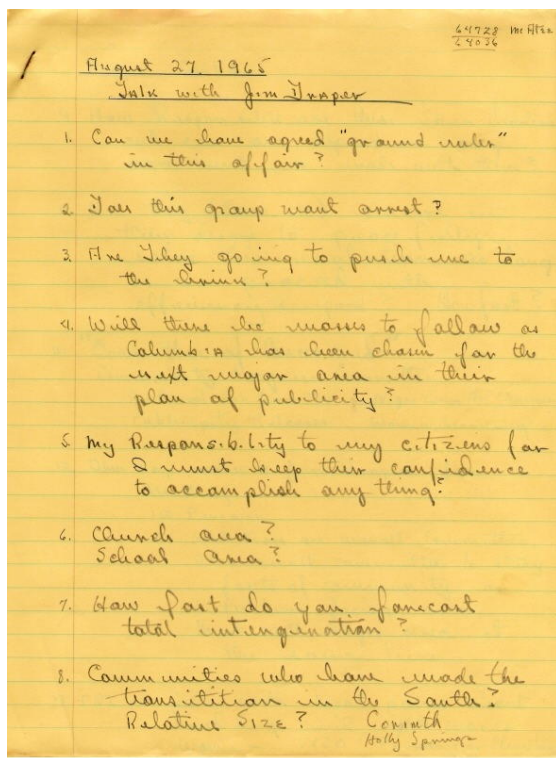 64728 McAtee
64036
August 27, 1965
Talk with Jim Draper
1. Can we have agreed "ground rules"
in this affair?
2. Does this group want arrest?
3. Are They going to push me to
the brink?
4. Will there be masses to follow as
Columbia has been chosen for the
next major area in their
plan of publicity?
5. My Responsibility to my citizens for
I must keep their confidence
to accomplish any thing?
6. Church area?
School area?
7. How fast do you forecast
total integration?
8. Communities who have made the
transitition in the South?
Relative Size? Corinth
Holly Springs